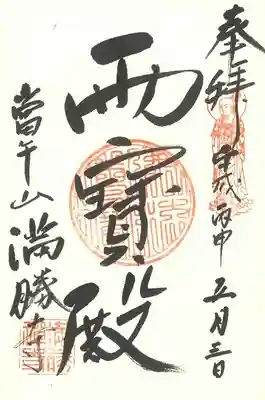 奉拝
平成丙申五月三日
雨寶殿
當午山
満勝寺